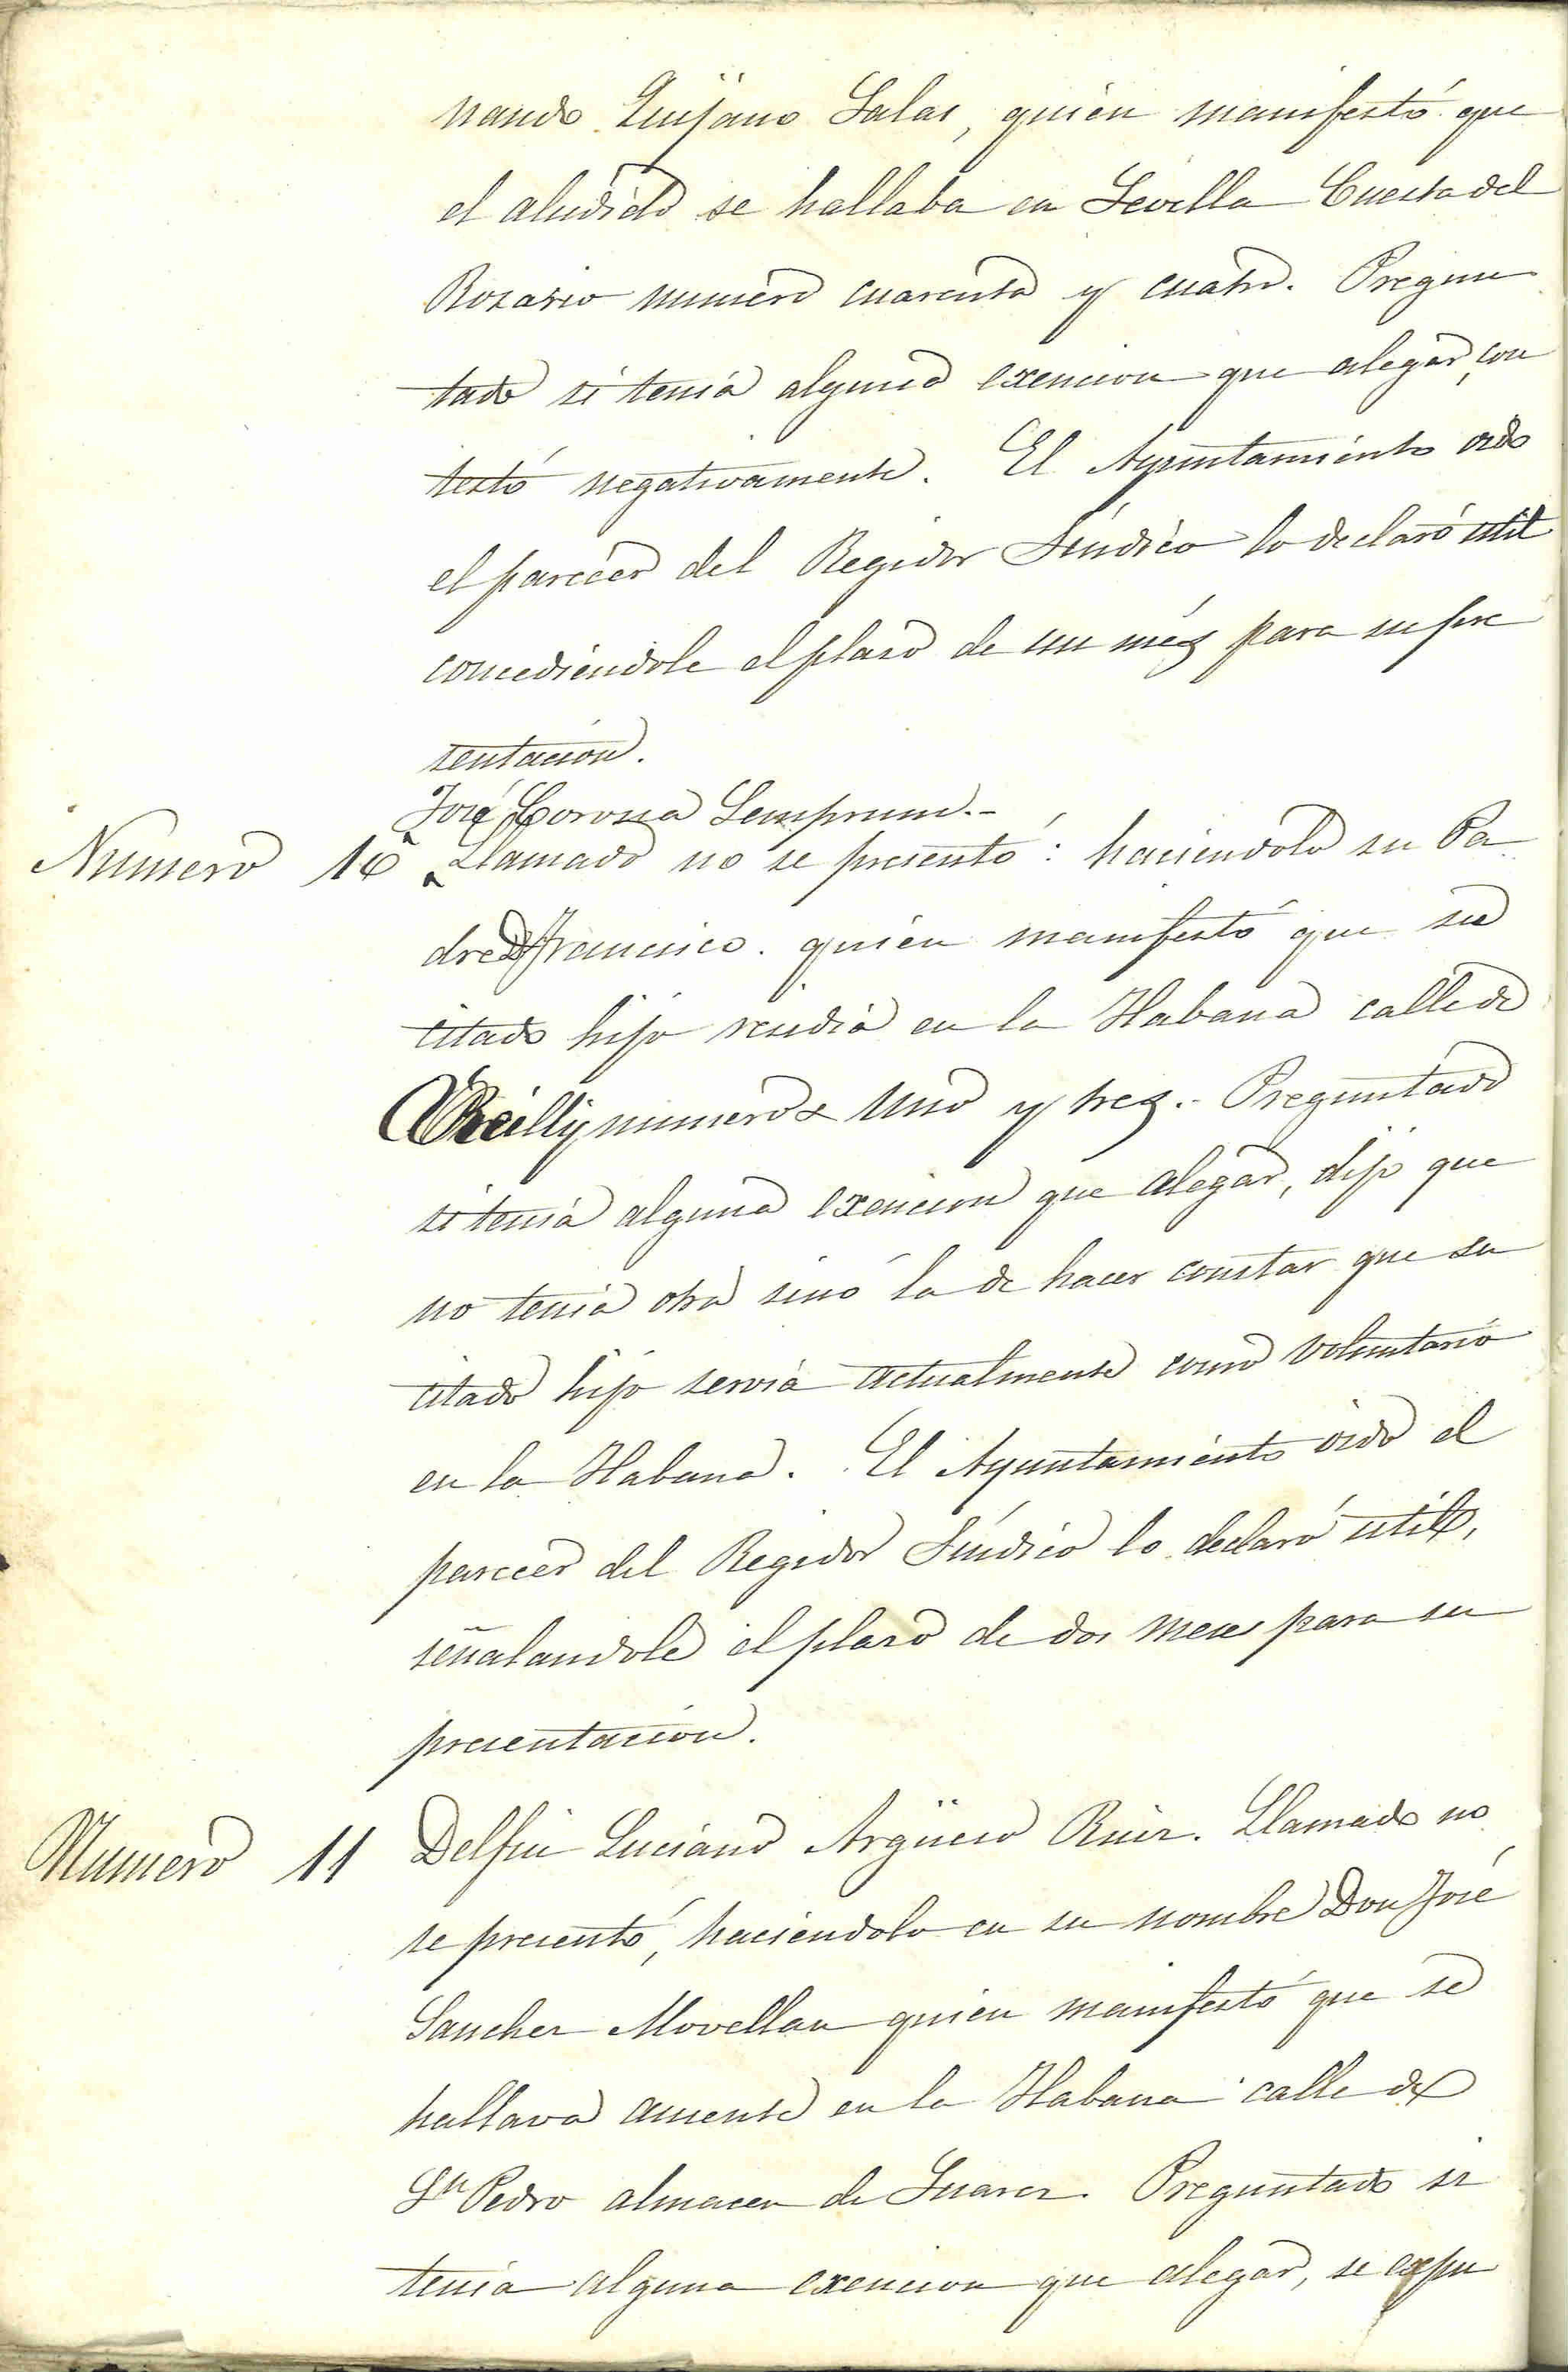 nando Quijano Salas, quien manifestó que
el aludido se hallaba en Sevilla Cuesta del
Rosario numero cuarenta y cuatro. Pregun
tado si tenia alguna exencion que alegar, con
testó negativamente. El Ayuntamiento oido
el parecer del Regidor Síndico lo declaró util
concediendole el plaso de un més para su pre
sentacion.
José Corona Semprun.-
Numero 10 Llamado no se presentó: haciendolo su Pa
dre Dn Francisco. quien manifestó que su
citado hijo residia en la Habana calle de
OReilly numeros uno y tres.- Preguntado
si tenia alguna exencion que alegar, dijo que
no tenia otra sinó la de hacer constar que su
citado hijo servia actualmente como voluntario
en la Habana. El Ayuntamiento oido el
parecer del Regidor Síndico lo declaró util,
señalandole el plaso de dos meses para su
presentacion.
Numero 11 Delfin Luciano Argüeso Ruiz. Llamado no
se presentó, haciendolo en su nombre Don José
Sanchez Movellan quien manifestó que se
hallava ausente en la Habana calle de
Sn Pedro almacen de Suarez. Preguntado si
tenia alguna exencion que alegar, se espu